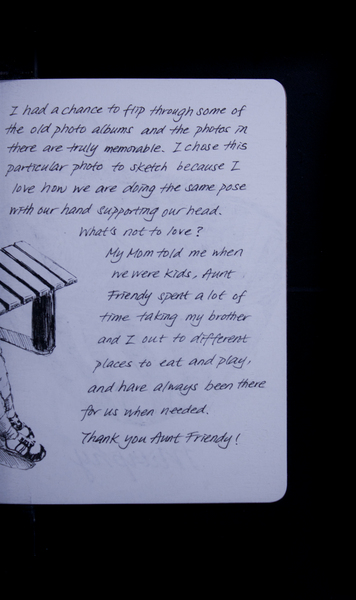 I had a chance to flip through some of
the old photo albums and the photos in
there are truly memorable. I chose this
particular photo to sketch because I
love how we are doing the same pose
with our hand supporting our head.
What's not to love?
My Mom told me when
we were kids, Aunt
Friendy spent a lot of
time taking my brother
and I out to different
places to eat and play,
and have always been there
for us when needed.
Thank you Aunt Friendy!